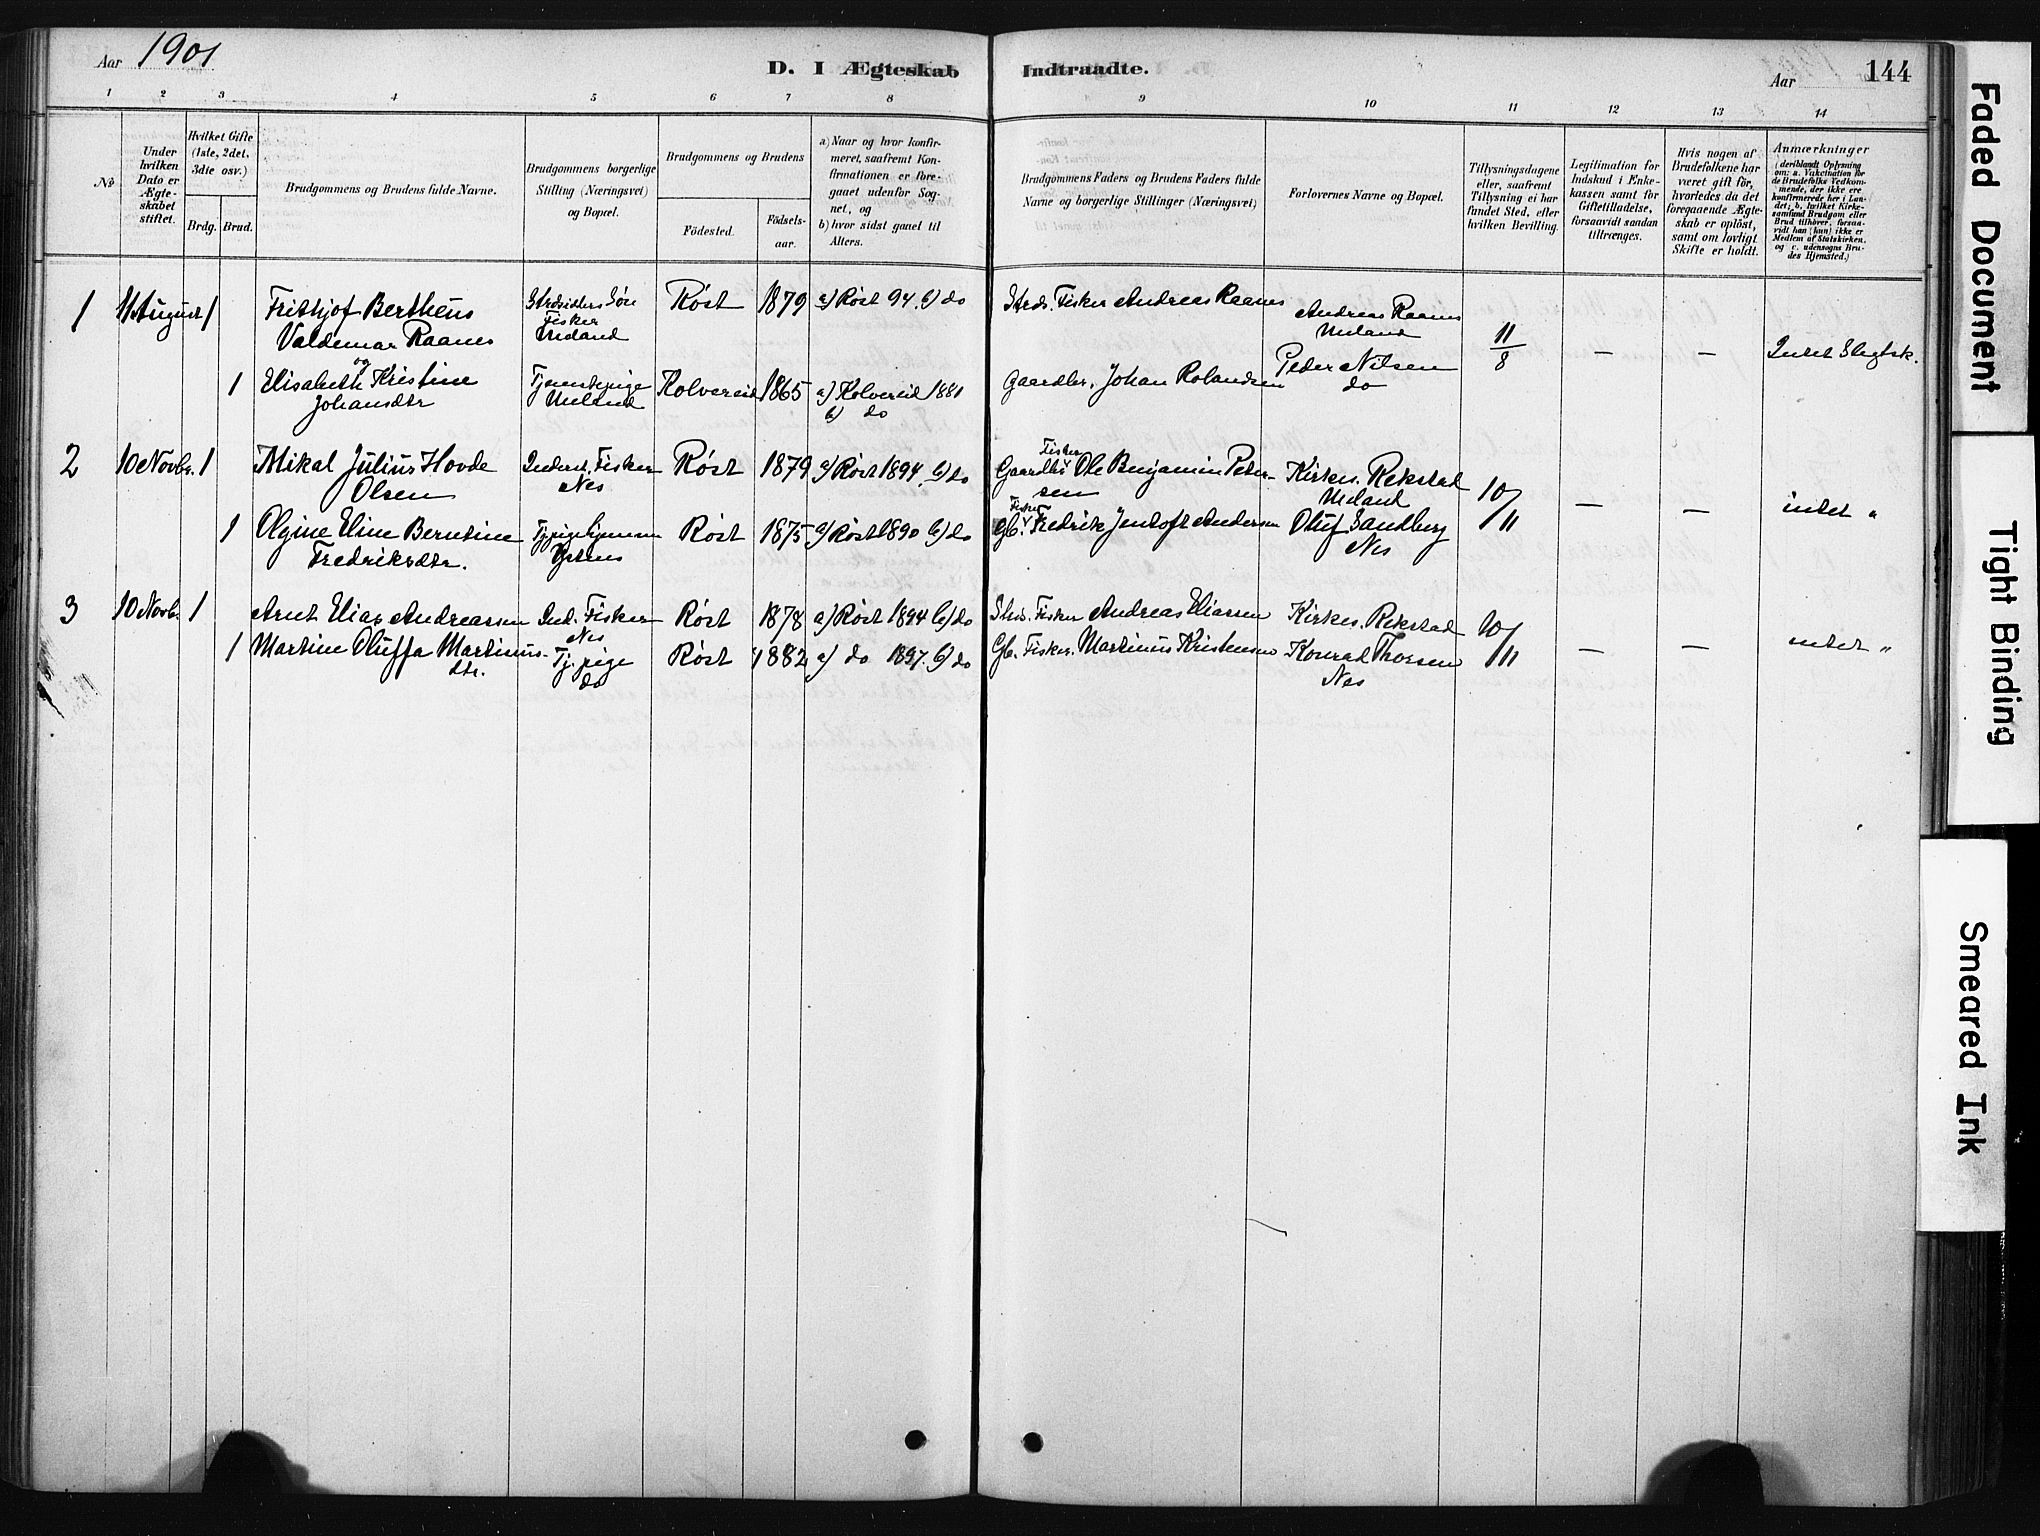 Aar 1901
D. I Ægteskab Indtraadte.
Aar
144
1 2 3 4 5 6 7 8 9 10 11 12 13 14
№
Under hvilken Dato er Ægteskabet stiftet.
Hvilket Gifte (1ste, 2det, 3die osv.)
Brdg. Brud.
Brudgommens og Brudens fulde Navne.
Brudgommens borgerlige Stilling (Næringsvei) og Bopæl.
Brudgommens og Brudens
Födested.
Födsels-aar.
a) Naar og hvor konfirmeret, saafremt Konfirmationen er foregaaet udenfor Sognet, og
b) hvor sidst gaaet til Alters.
Brudgommens Faders og Brudens Faders fulde Navne og borgerlige Stillinger (Næringsvei)
Forlovernes Navne og Bopæl.
Tillysningsdagene eller, saafremt Tillysning ei har fundet Sted, efter hvilken Bevilling.
Legitimation for Indskud i Enkekassen samt for Giftetilladelse, forsaavidt saadan tiltrænges.
Hvis nogen af Brudefolkene har været gift för, hvorledes da det foregaaende Ægteskab er oplöst, samt om lovligt Skifte er holdt.
Anmærkninger
(deriblandt Oplysning om: a. Vakcination for de Brudefolks Vedkommende, der ikke ere konfirmerede her i Landet; b. hvilket Kirkesamfund Brudgom eller Brud tilhører, forsaavidt han (hun) ikke er Medlem af Statskirken, og c. udensogns Brudes Hjemsted.)
1 11 August 1 Frithjof Bertheus Strdsidders Søn Røst 1879 a) Røst 94. b) do Strds. Fisker Andreas Raanes Andreas Raanes
Valdemar Raanes Fisker Ueland Ueland 11/8 — — Intet Slegtsk.
og
1 Elisabeth Kristine Tjenestepige Kolvereid 1865 a) Kolvereid 1881 Gaardbr. Johan Rolandsen Peder Nilsen
Johansdtr Ueland b) do do
2 10 Novbr. 1 Mikal Julius Hovde Fisker Røst 1879 a) Røst 1894. b) do Gaardbr Fisker Ole Benjamin Peder- Kirkes. Rekstad
Olsen Nes sen Ueland 10/11 — — intet "
1 Olgine Eline Berntine Røst 1875 a) Røst 1890 b) do Gb. Fisker Fredrik Jentoft Andersen Oluf Sandberg
Fredriksdtr. Nes
3 10 Novb. 1 Arnt Elias Andreassen Ind. Fisker Røst 1878 a) Røst 1894 b) do Strds. Fisker Andreas Eliassen Kirkes. Rekstad 10/11
Nes
1 Martine Oluffa Martinus- Tj. pige Røst 1882 a) do 1897. b) do Gb. Fisker. Martinus Kristensen Konrad Thorsen — — intet "
dtr. do Nes
Faded Document
Tight Binding
Smeared Ink